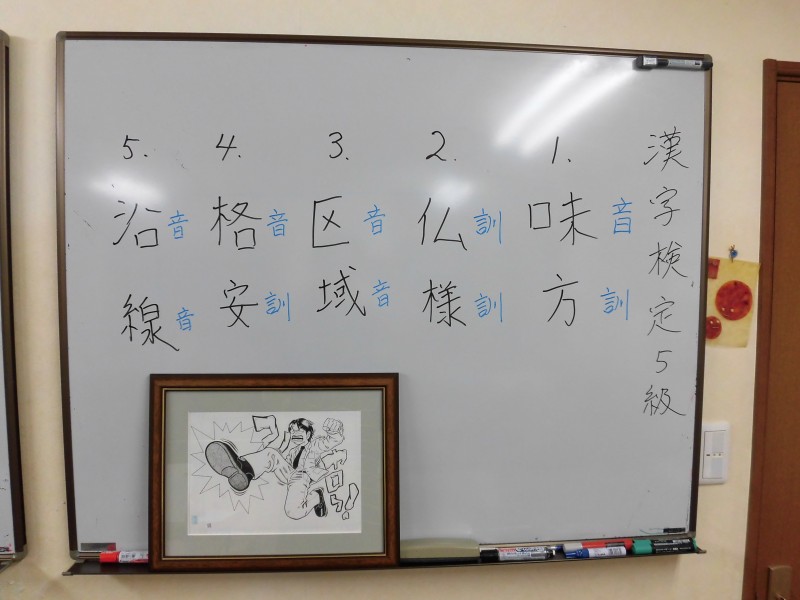 漢字検定5級
1.
味音
方訓
2.
仏訓
様訓
3.
区音
域音
4.
格音
安訓
5.
沿音
線音